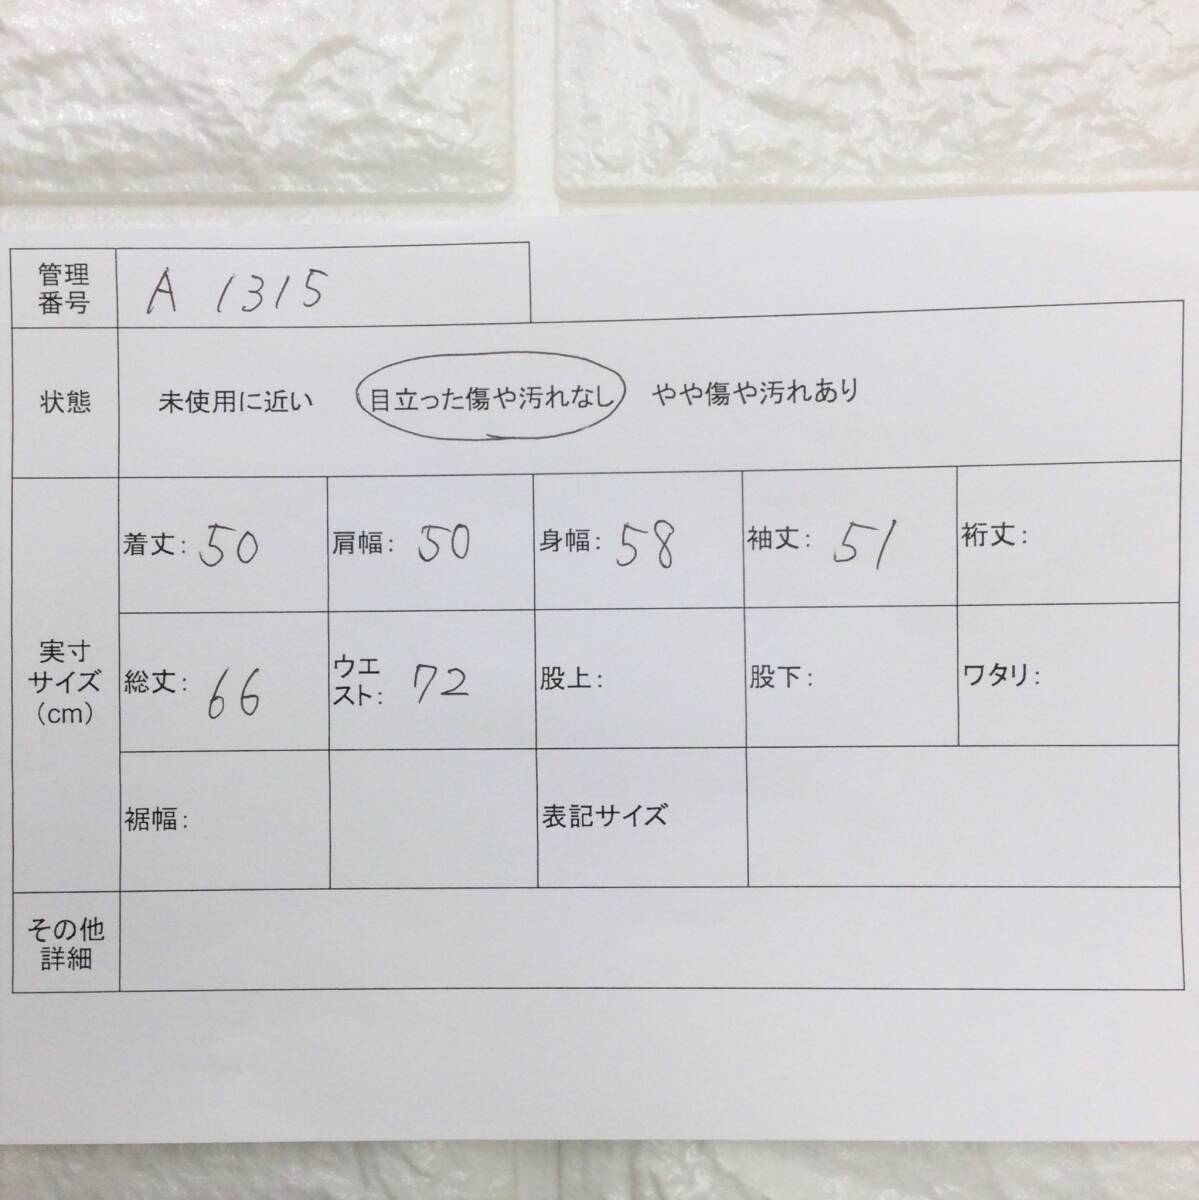 管理
番号
A 1315
状態
未使用に近い 目立った傷や汚れなし やや傷や汚れあり
実寸
サイズ
（cm）
着丈: 50
肩幅: 50
身幅: 58
袖丈: 51
裄丈:
総丈: 66
ウエ
スト: 72
股上:
股下:
ワタリ:
裾幅:
表記サイズ
その他
詳細